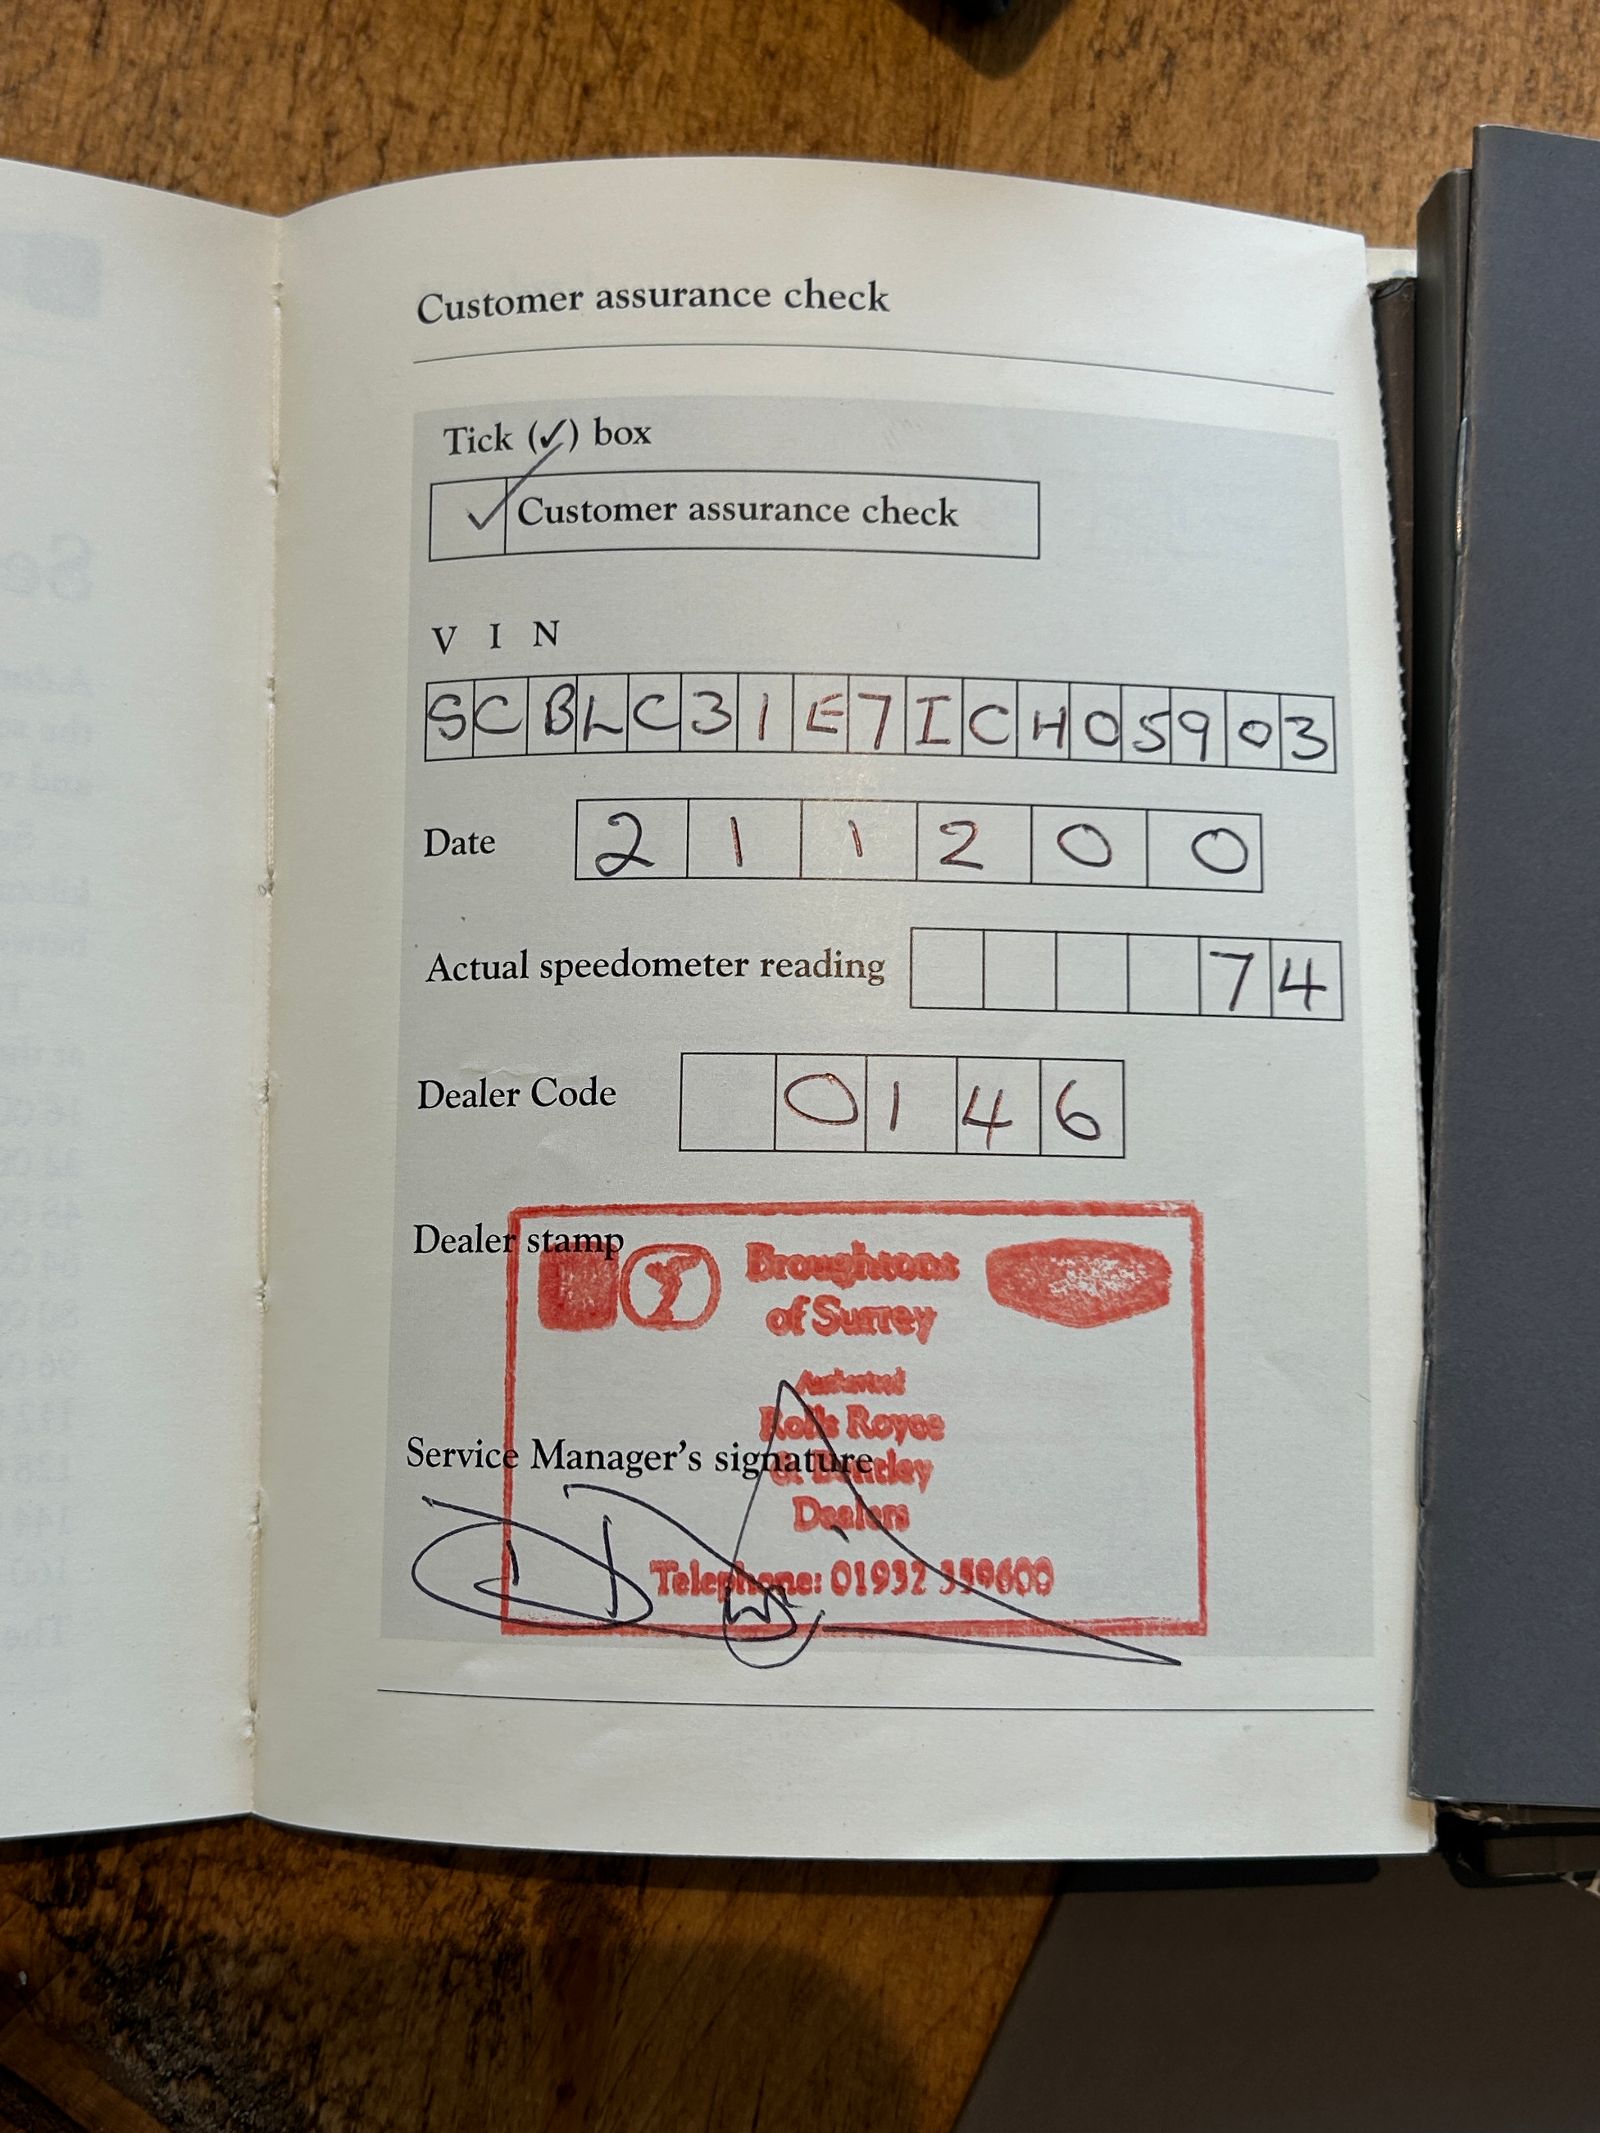 Customer assurance check
Tick (✓) box
✓ Customer assurance check
V I N
SCBLC31E7ICH05903
Date 211200
Actual speedometer reading 74
Dealer Code 0146
Dealer stamp
Broughtons
of Surrey
Authorised
Rolls Royce
& Bentley
Service Manager's signature
Dealers
Telephone: 01932 359600